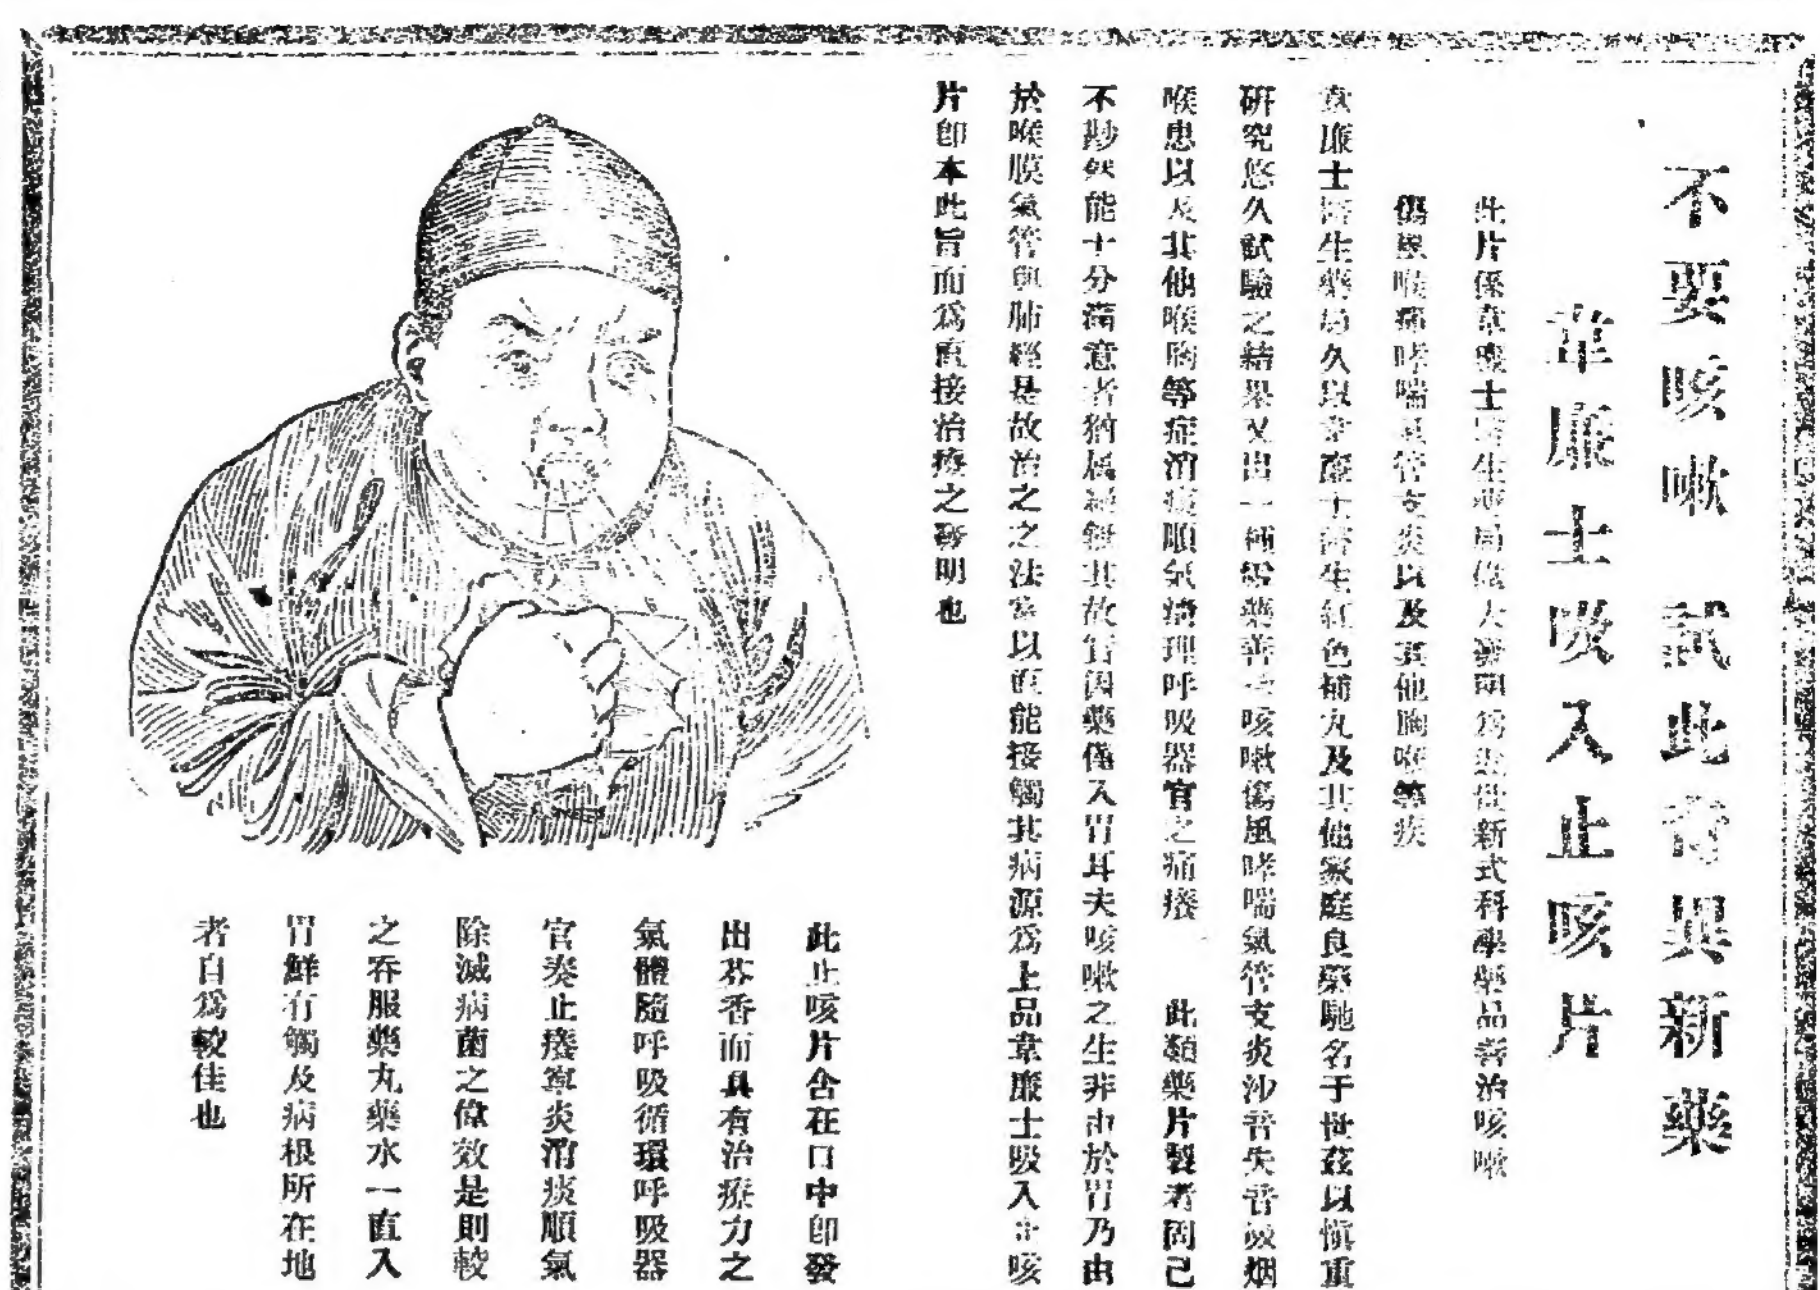 不要咳嗽 試此奇異新藥
韋廉士吸入止咳片
此片係韋廉士醫生藥局偉大發明為近世新式科學藥品善治咳嗽
傷風喉痛哮喘氣管支炎以及其他胸喉等疾
韋廉士醫生藥局久以韋廉士醫生紅色補丸及其他家庭良藥馳名于世茲以愼重
研究悠久試驗之結果又出一種發藥善治咳嗽傷風哮喘氣管支炎沙音失音吸烟
喉患以及其他喉胸等症消痰順氣 理呼吸器官之痛癢 此類藥片製者固已
不尠然能十分滿意者猶屬 無其故皆因藥僅入胃耳夫咳嗽之生非由於胃乃由
於喉膜氣管與肺經是故治之之法 以直能接觸其病源爲上品韋廉士吸入止咳
片卽本此旨而爲直接治療之發明也
此止咳片含在口中卽發
出芬香而具有治療力之
氣體隨呼吸循環呼吸器
官奏止癢寧炎消痰順氣
除滅病菌之偉效是則較
之吞服藥丸藥水一直入
胃鮮有觸及病根所在地
者自爲較佳也